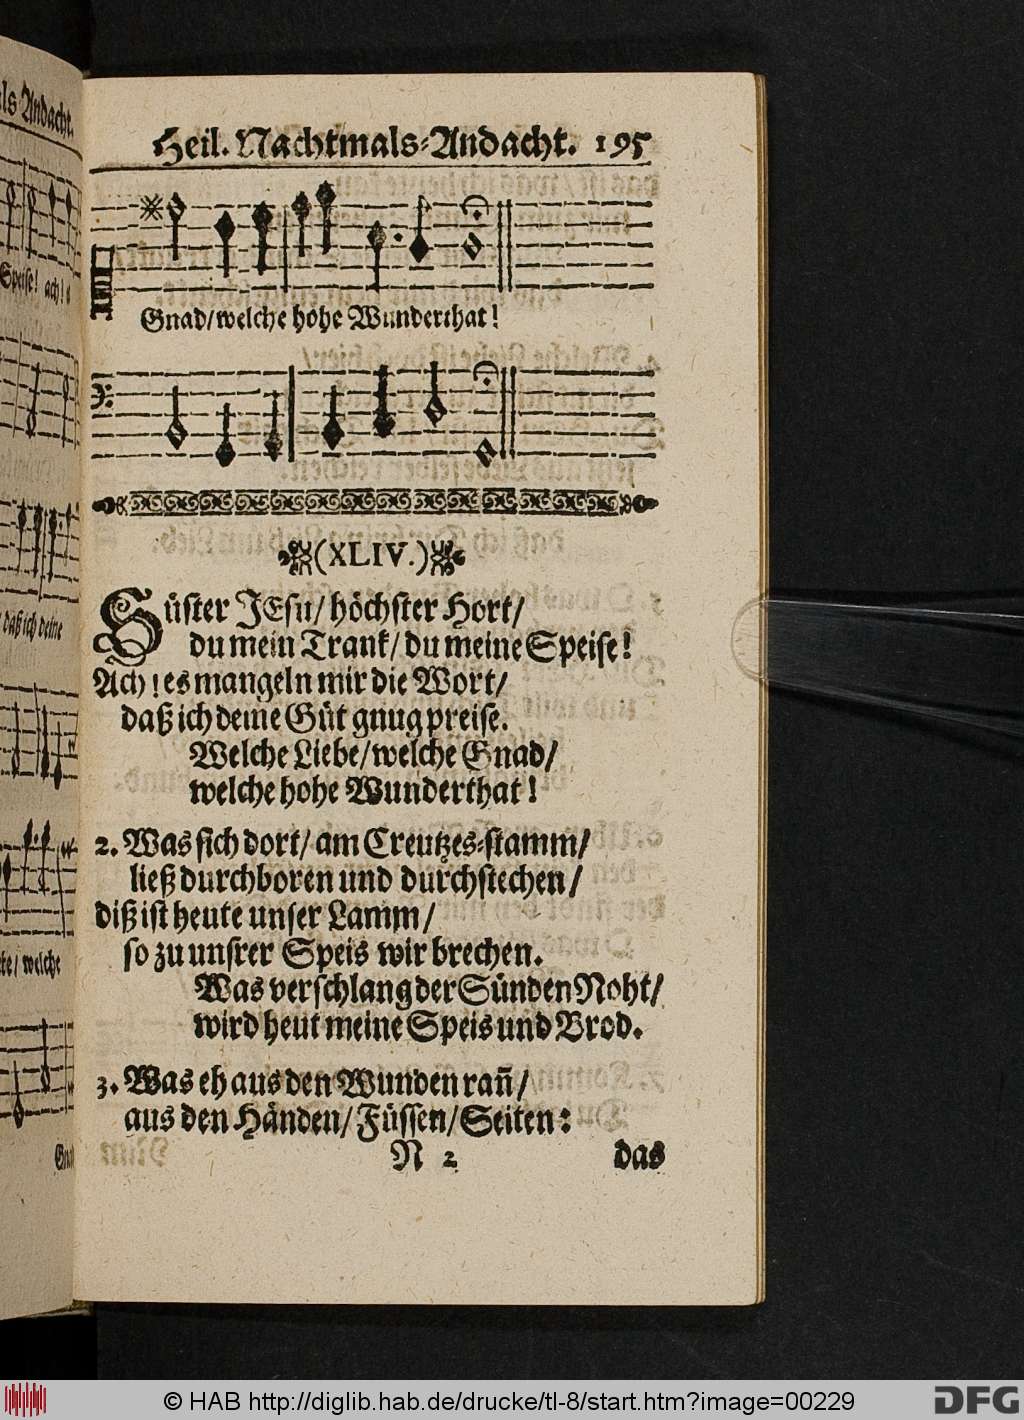 ls Andacht.
Speise! ach!
daß ich deine
te/ welche
Heil. Nachtmals-Andacht. 195
Gnad/welche hohe Wunderthat!
(XLIV.)
Süster JEsu/ höchster Hort/
du mein Trank/ du meine Speise!
Ach! es mangeln mir die Wort/
daß ich deine Güt gnug preise.
Welche Liebe/welche Gnad/
welche hohe Wunderthat!
2. Was sich dort/ am Creutzes-stamm/
ließ durchboren und durchstechen/
diß ist heute unser Lamm/
so zu unsrer Speis wir brechen.
Was verschlang der Sünden Noht/
wird heut meine Speis und Brod.
3. Was eh aus den Wunden rañ/
aus den Händen/Füssen/Seiten:
N 2 das
© HAB http://diglib.hab.de/drucke/tl-8/start.htm?image=00229 DFG